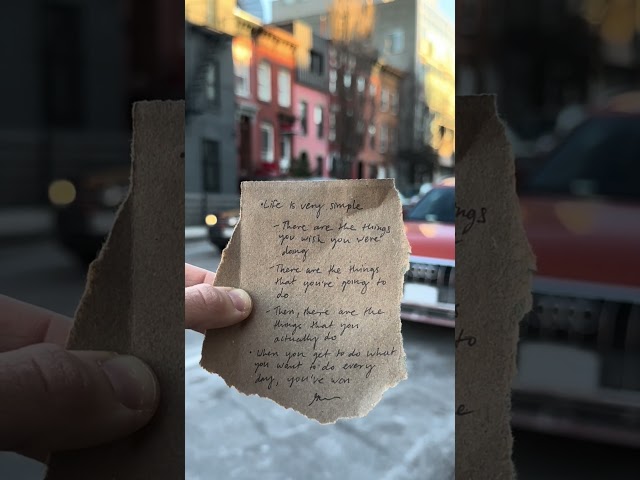 • Life is very simple
- There are the things
you wish you were
doing
- There are the things
that you're going to
do
- Then, there are the
things that you
actually do
• When you get to do what
you want to do every
day, you've won